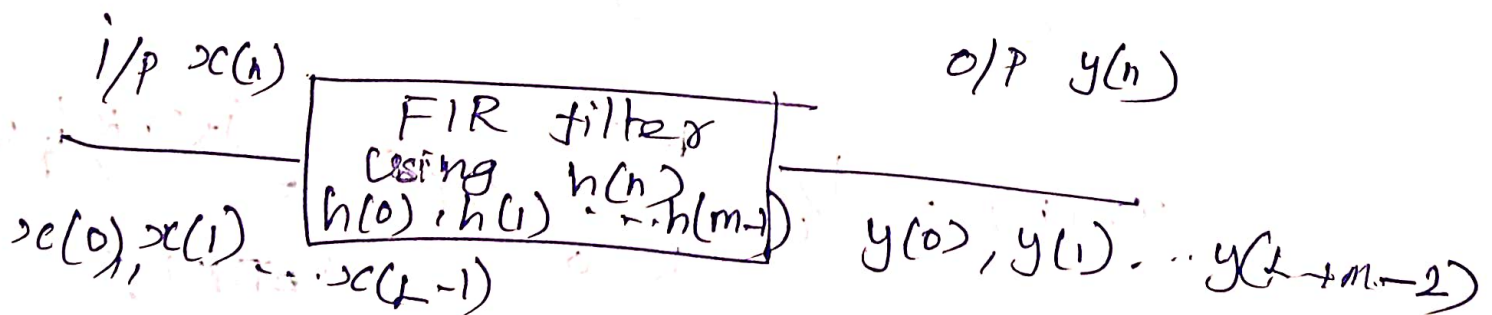 i/p x(n)
o/p y(n)
FIR filter
using h(n)
h(0), h(1) ... h(m-1)
x(0), x(1) ... x(L-1)
y(0), y(1) ... y(L+m-2)